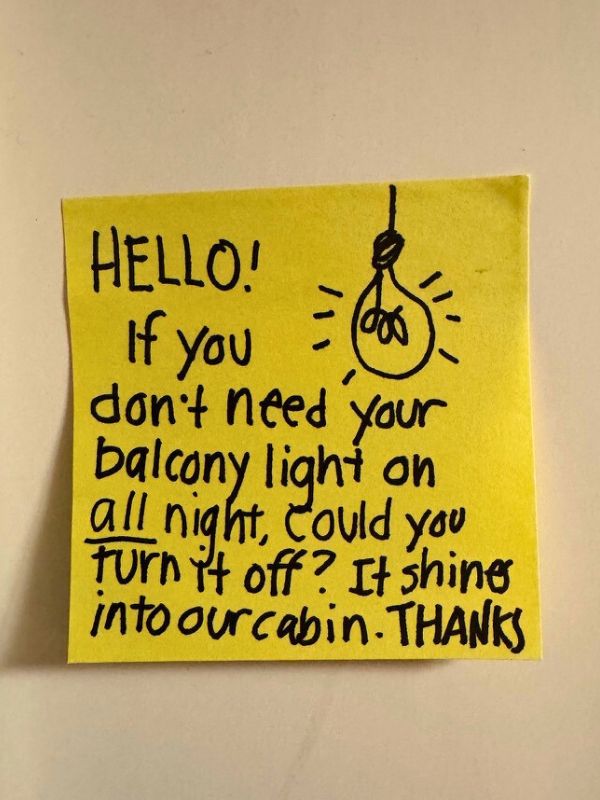 HELLO!
If you
don't need your
balcony light on
all night, could you
turn it off? It shines
into our cabin. THANKS